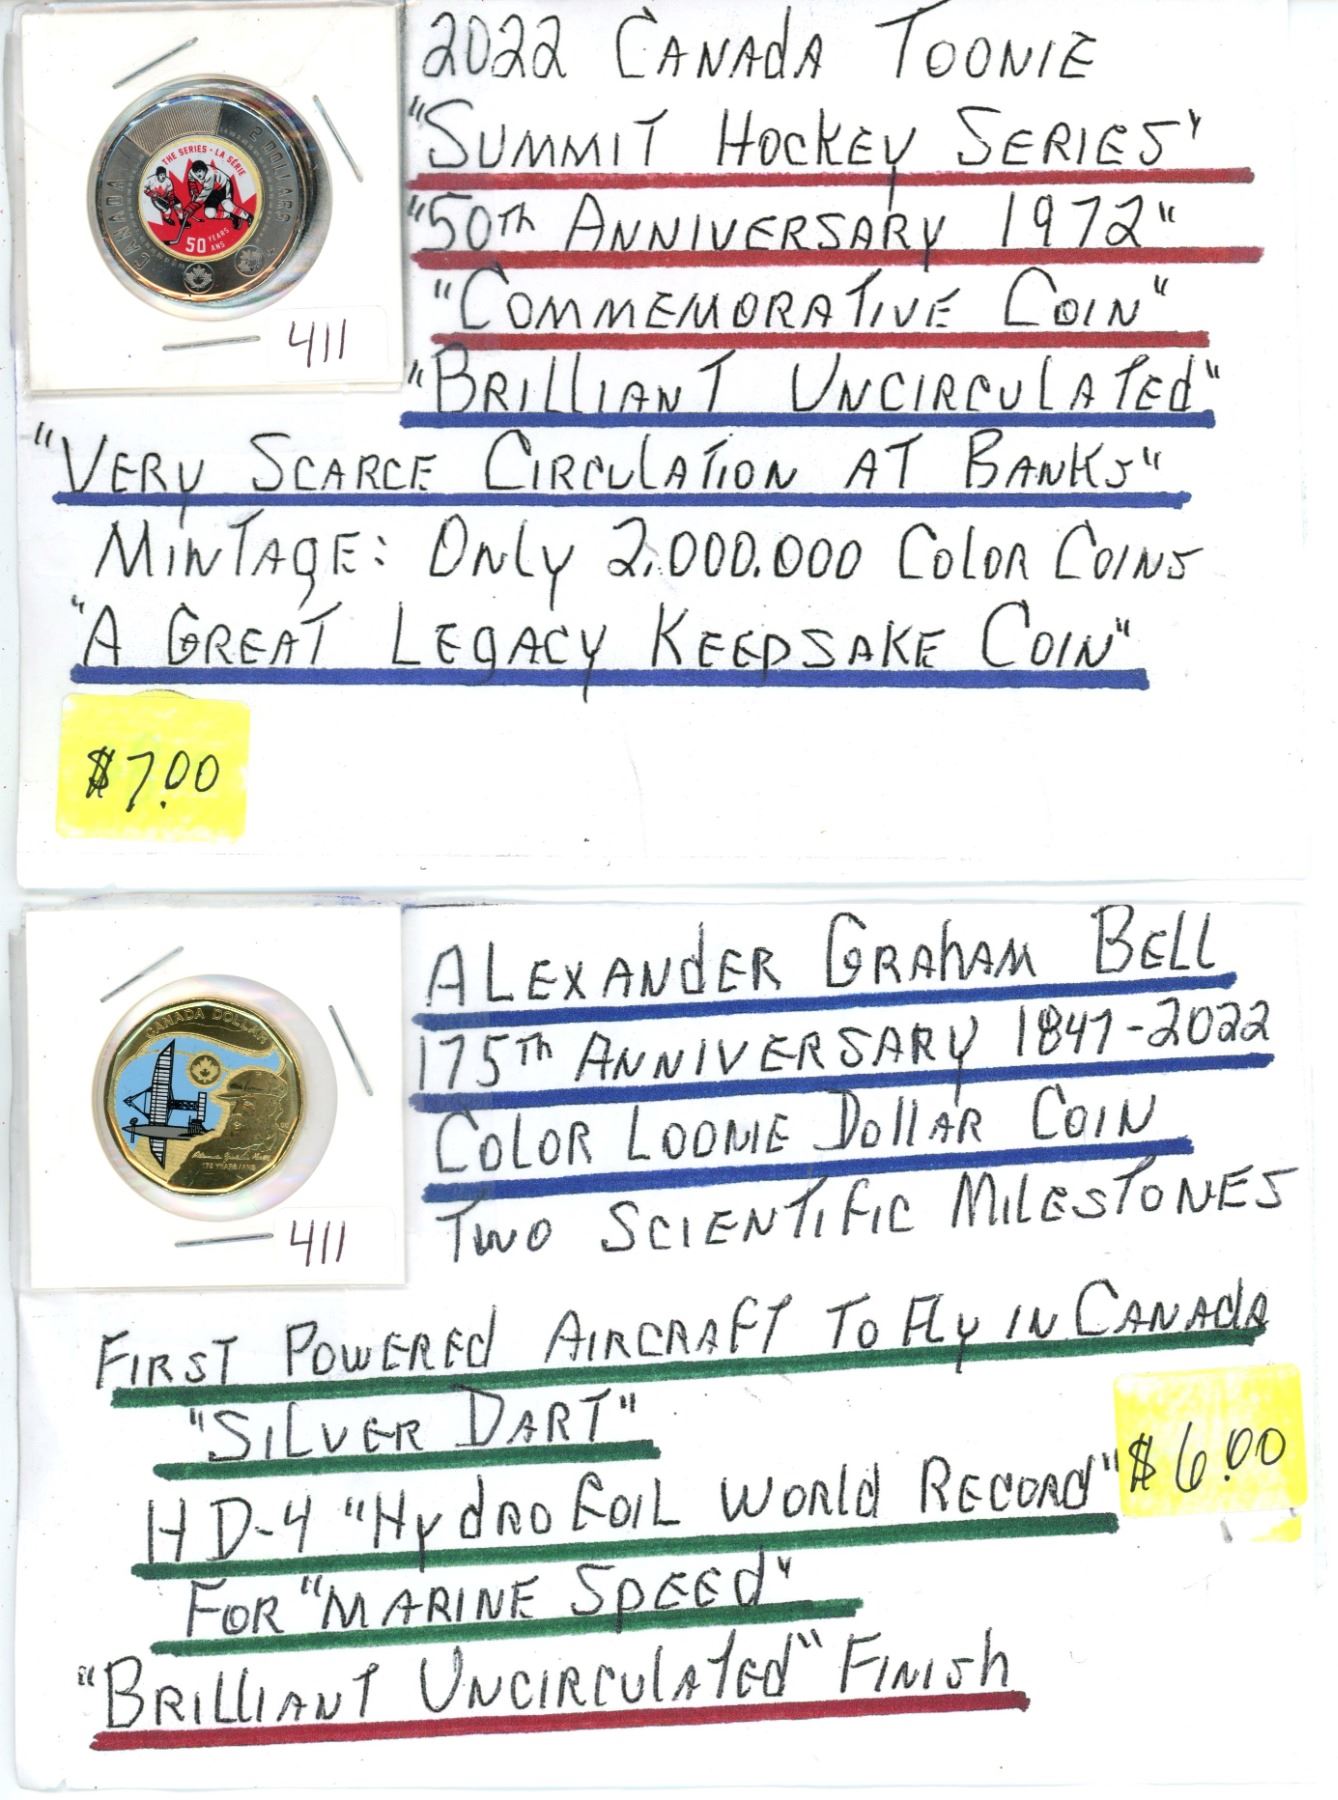 2022 CANADA TOONIE
"SUMMIT HOCKEY SERIES"
"50TH ANNIVERSARY 1972"
"COMMEMORATIVE COIN"
"BRILLIANT UNCIRCULATED"
"VERY SCARCE CIRCULATION AT BANKS"
MINTAGE: ONLY 2,000.000 COLOR COINS
"A GREAT LEGACY KEEPSAKE COIN"
$7.00
CANADA 2 DOLLARS
THE SERIES · LA SÉRIE
50 YEARS ANS
411
ALEXANDER GRAHAM BELL
175TH ANNIVERSARY 1847-2022
COLOR LOONIE DOLLAR COIN
TWO SCIENTIFIC MILESTONES
FIRST POWERED AIRCRAFT TO FLY IN CANADA
"SILVER DART"
HD-4 "HYDROFOIL WORLD RECORD"
$6.00
FOR "MARINE SPEED"
"BRILLIANT UNCIRCULATED" FINISH
CANADA DOLLAR
175 YEARS/ANS
411